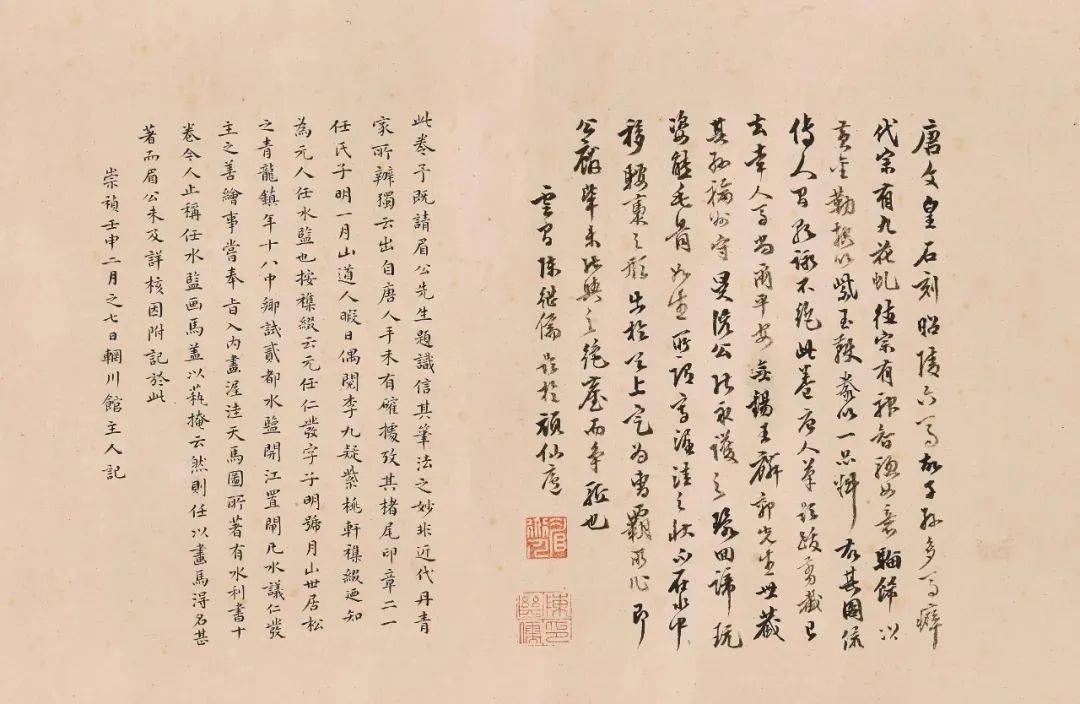 唐文皇石刻昭陵六馬故子孫多馬癖
代宗有九花虬德宗有神智驄如意騮飾以
黃金勒控以紫玉鞭豢以一品料故其圖流
傳人間歌詠不絕此卷唐人筆題跋剪截已
去幸人馬尚爾平安無錫王麟郭先生世藏
其孫福州守昊谿公能永護之縁回諦玩
姿態毛骨如生所謂寫渥洼之狀而在水中
移騕褭之形出於天上定為曹霸而心即
公麟輩未能與之絕塵而爭疋也
雲間陳繼儒題於頑仙廬
眉公
陳印繼儒
此卷予既請眉公先生題識信其筆法之妙非近代丹青
家所辦獨云出自唐人手未有確據攷其楮尾印章二一
任氏子明一月山道人暇日偶閱李九疑紫桃軒襍綴廼知
為元人任水監也按襍綴云元任仁發字子明號月山世居松
之青龍鎮年十八中鄉試貳都水監開江置閘凡水議仁發
主之善繪事嘗奉旨入內畫渥洼天馬圖所著有水利書十
卷今人止稱任水監画馬蓋以蓺掩云然則任以畫馬得名甚
著而眉公未及詳核因附記於此
崇禎壬申二月之七日輞川館主人記